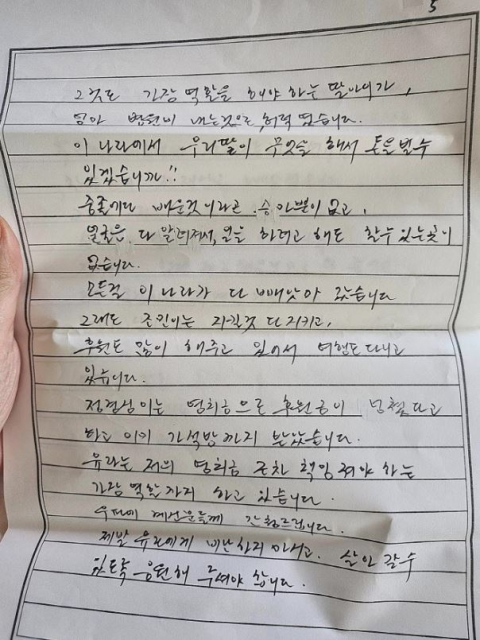 5
그것도 가장 역활을 해야 하는 딸아이가,
엄마 병원비 내는것으로 허덕 였습니다.
이 나라에서 우리딸이 무엇을 해서 돈을벌수
있겠습니까!!
중졸에다 배운것이라곤 승마뿐이 없고,
얼굴은 다 알려져서, 일을 하려고 해도 할수 있는곳이
없습니다.
모든걸 이 나라가 다 빼앗아 갔습니다
그래도 조민이는 지킬것 다 지키고,
후원도 많이 해주고 있어서 여행도 다니고
있습니다.
정경심이는 영치금으로 후원금이 넘쳤다고
하고 이미 가석방까지 받았습니다.
유라는 저의 영치금 조차 책임져야 하는
가장 역활 까지 하고 있습니다.
우파에 계신분들께 간청드립니다.
제발 유라에게 비난하지 마시고. 살아 갈수
있도록 응원해 주셔야 합니다.